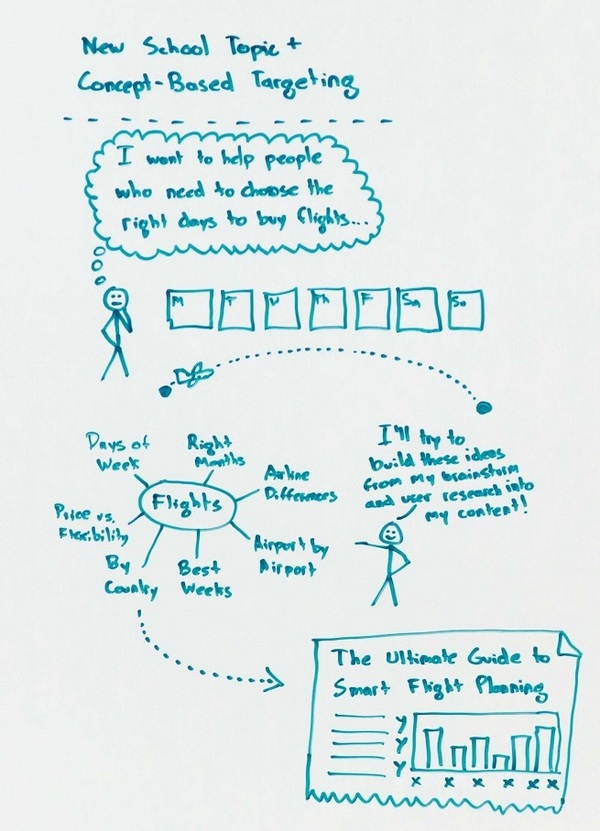 New School Topic +
Concept-Based Targeting
I want to help people
who need to choose the
right days to buy flights...
M T W Th F Sa Su
I'll try to
build these ideas
from my brainstorm
and user research into
my content!
Days of
Week
Right
Months
Airline
Differences
Price vs.
Flexibility
Flights
Airport by
Airport
By
Country
Best
Weeks
The Ultimate Guide to
Smart Flight Planning
y
y
y
x x x x x x